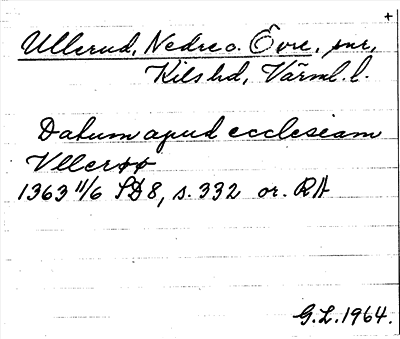 +
Ullerud, Nedre o. Övre, snr,
Kils hd, Värml. l.
Datum apud ecclesiam
Vllerøø
1363 11/6 SD8, s. 332 or. RA
G.L. 1964.